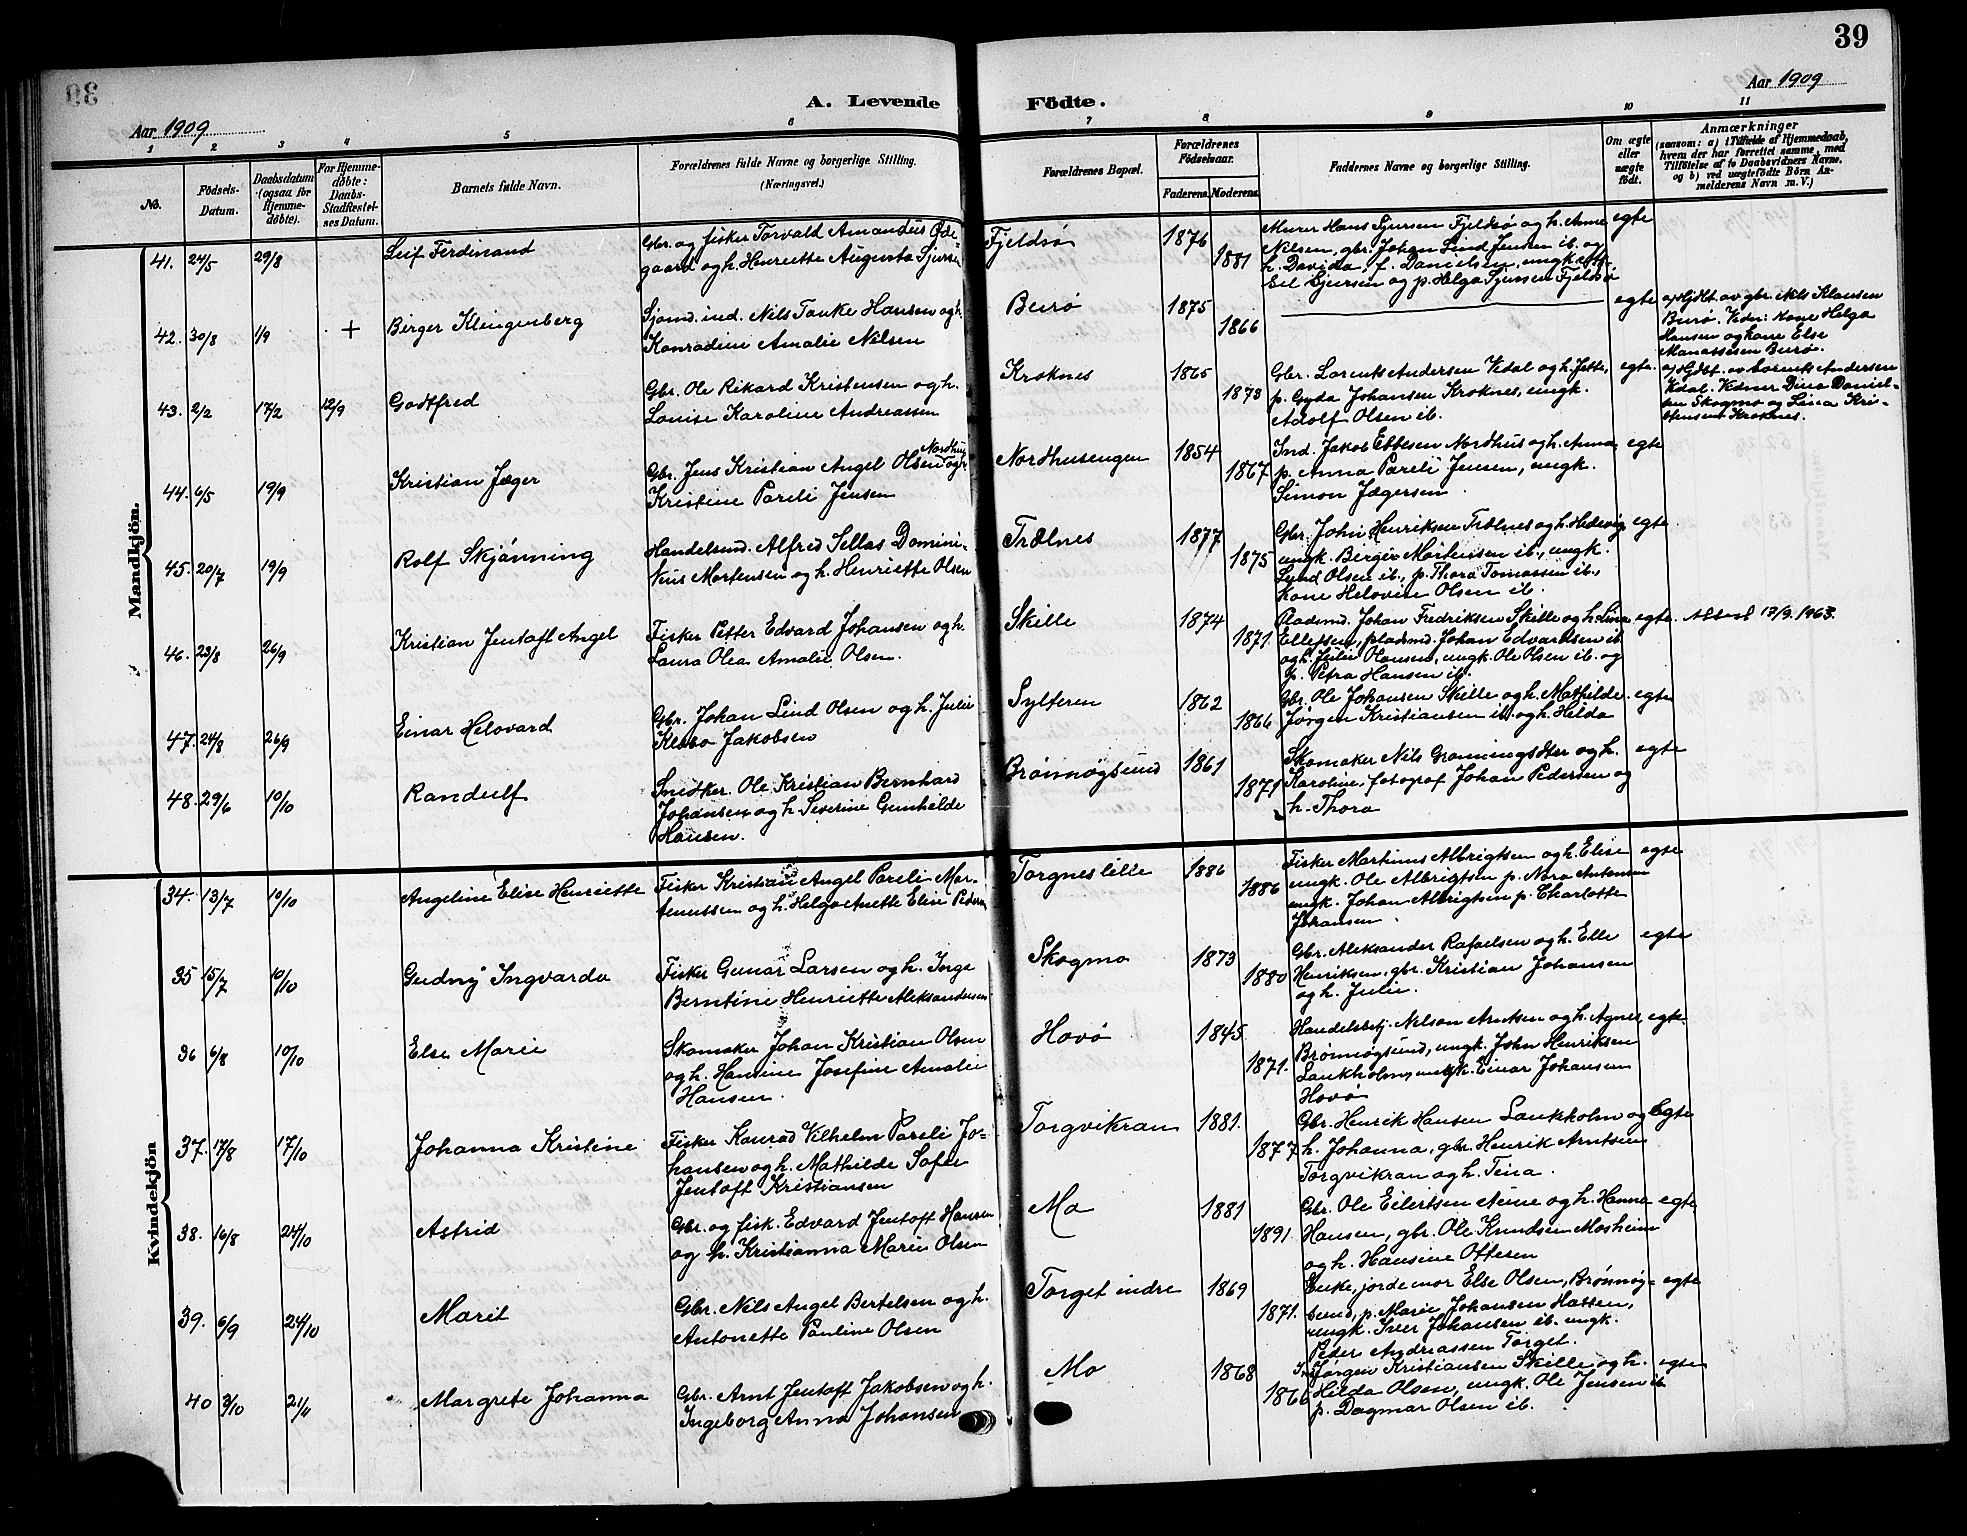 39
Aar 1909
A. Levende
Födte.
Aar 1909
1 2 3 4 5 6 7 8 9 10 11
No.
Födsels-Datum.
Daabsdatum (ogsaa för Hjemmedöbte).
For Hjemmedöbte: Daabs-Stadfestelses Datum.
Barnets fulde Navn.
Forældrenes fulde Navne og borgerlige Stilling.
(Næringsvei.)
Forældrenes Bopæl.
Forældrenes Födselsaar.
Faderens. Moderens.
Faddernes Navne og borgerlige Stilling.
Om ægte eller uægte födt.
Anmærkninger
(saasom: a) i Tilfælde af Hjemmedaab, hvem der har forrettet samme, med Tilföielse af to Daabsvidners Navne, og b) ved uægtefödte Börn Anmelderens Navn m. V.)
Mandkjön.
41. 24/5 29/8 Leif Ferdinand
Gbr. og fisker Torvald Amandus Øde-
gaard og h. Henriette Augusta Sjursen
Fjeldsø 1876 1881
Murer Hans Sjursen Fjeldsø og h. Anne
Nilsen, gbr. Johan Lind Jensen ib. og
h. Davida, f. Danielsen, ungk.
Sjursen og p. Helga Sjursen Fjeldsø
egte
42. 30/8 1/9 + Birger Klingenberg
Sjömd. ind. Nils Tanke Hansen og h.
Konradine Amalie Nilsen
Burø 1875 1866
egte
a) Hjdt. av gbr. Nils Klausen
Burø. Vidn: Kone Helga
Hansen og kone Else
Manassesen Burø.
43. 2/2 17/2 12/9 Godtfred
Gbr. Ole Rikard Kristensen og h.
Louise Karoline Andreassen
Kroknes 1865 1873
Gbr. Lorents Andersen Vedal og h. Jette,
p. Gyda Johansen Kroknes, ungk.
Adolf Olsen ib.
egte.
a) Hjdt. av Lorents Andersen
Vedal. Vidner Dina Daniel-
sen Skogmo og Lina Kri-
stensen Kroknes.
44. 6/5 19/9 Kristian Jæger
Nordhus
Gbr. Jens Kristian Angel Olsen og h.
Kristine Pareli Jensen
Nordhusengen 1854 1867
Ind. Jakob Ebbesen Nordhus og h. Anna,
p. Anna Pareli Jensen, ungk.
Simon Jægersen
egte
45. 20/7 19/9 Rolf Skjønning
Handelsmd. Alfred Sellas Domini-
kus Mortensen og h. Henriette Olsen
Trælnes 1877 1875
Gbr. John Henriksen Trælnes og h. Hedevig
ungk. Berger Mortensen ib., ungk.
Lund Olsen ib., p. Thora Tomassen ib.,
kone Helovine Olsen ib.
egte
46. 23/8 26/9 Kristian Jentoft Angel
Fisker Petter Edvard Johansen og h.
Laura Olea Amalie Olsen.
Skille 1874 1871.
Pladsmd. Johan Fredriksen Skille og h. Lina
Ellefsen, pladsmd. Johan Edvardsen ib
og h. Julie Hansen, ungk. Ole Olsen ib. og
p. Petra Hansen ib.
egte. Attest 17/9. 1963.
47. 24/8 26/9 Einar Helovard
Gbr. Johan Lind Olsen og h. Julie
Klebo Jakobsen
Sylteren 1862 1866
Gbr. Ole Johansen Skille og h. Mathilde
Jørgen Kristiansen ib. og h. Hilda
egte
48. 29/6 10/10 Randulf
Snedker. Ole Kristian Bernhard
Johansen og h. Severine Gunhilde
Hansen.
Brønnøysund 1861 1871
Skomaker Nils Grønningsæter og h.
Karoline, fotograf Johan Pedersen og
h. Thora
egte
Kvindekjön
34. 13/7 10/10 Angeline Elise Henriette
Fisker Kristian Angel Pareli Mar-
tenussen og h. Helga Anette Elise Pedersen
Torgnes lille 1886 1886
Fisker Martinus Albrigtsen og h. Elise
ungk. Ole Albrigtsen p. Nora Antonsen
ungk. Johan Albrigtsen p. Charlotte
Johansen
egte
35 15/7 10/10 Gudny Ingvarda
Fisker Gunnar Larsen og h. Inga
Berntine Henriette Aleksandersen
Skogmo 1873 1880
Gbr. Aleksander Rafaelsen og h. Elle
Henriksen, gbr. Kristian Johansen
og h. Julie.
egte
36 6/8 10/10 Else Marie
Skomaker Johan Kristian Olsen
og h. Hansine Josefine Amalie
Hansen.
Hovø 1845 1871.
Handelsbetj. Nelson Arntsen og h. Agnes
Brønnøysund, ungk. John Henriksen
Laukholm, ungk. Einar Johansen
Hovø
egte.
37. 17/8 17/10 Johanna Kristine
Fisker Konrad Vilhelm Pareli Jo-
hansen og h. Mathilde Sofie
Jentoft Kristiansen
Torgvikran 1881. 1877
Gbr. Henrik Hansen Laukholm og
h. Johanna, gbr. Henrik Arntsen
Torgvikran og h. Tina.
Egte
38. 16/8 24/10 Astrid
Gbr. og fisk. Edvard Jentoft Hansen
og h. Kristianna Marie Olsen
Mo 1881 1891.
Gbr. Ole Eilertsen Neine og h. Hanna
Hansen, gbr. Ole Knudsen Mosheim
og h. Hansine Ottesen
egte
39. 6/9 24/10 Marit
Gbr. Nils Angel Bertelsen og h.
Antonette Pauline Olsen
Torget indre 1869 1871.
Enke, jordemor Else Olsen, Brønnøy-
sund, p. Marie Johansen Hatten,
ungk. Iver Johansen ib. ungk.
Peder Andreassen Torget.
egte
40 3/10 21/11 Margrete Johanna
Gbr. Arnt Jentoft Jakobsen og h.
Ingeborg Anna Johansen
Mo 1868 1866
Jørgen Kristiansen Skille og h.
Hilda Olsen, ungk. Ole Jensen ib
p. Dagmar Olsen ib.
egte